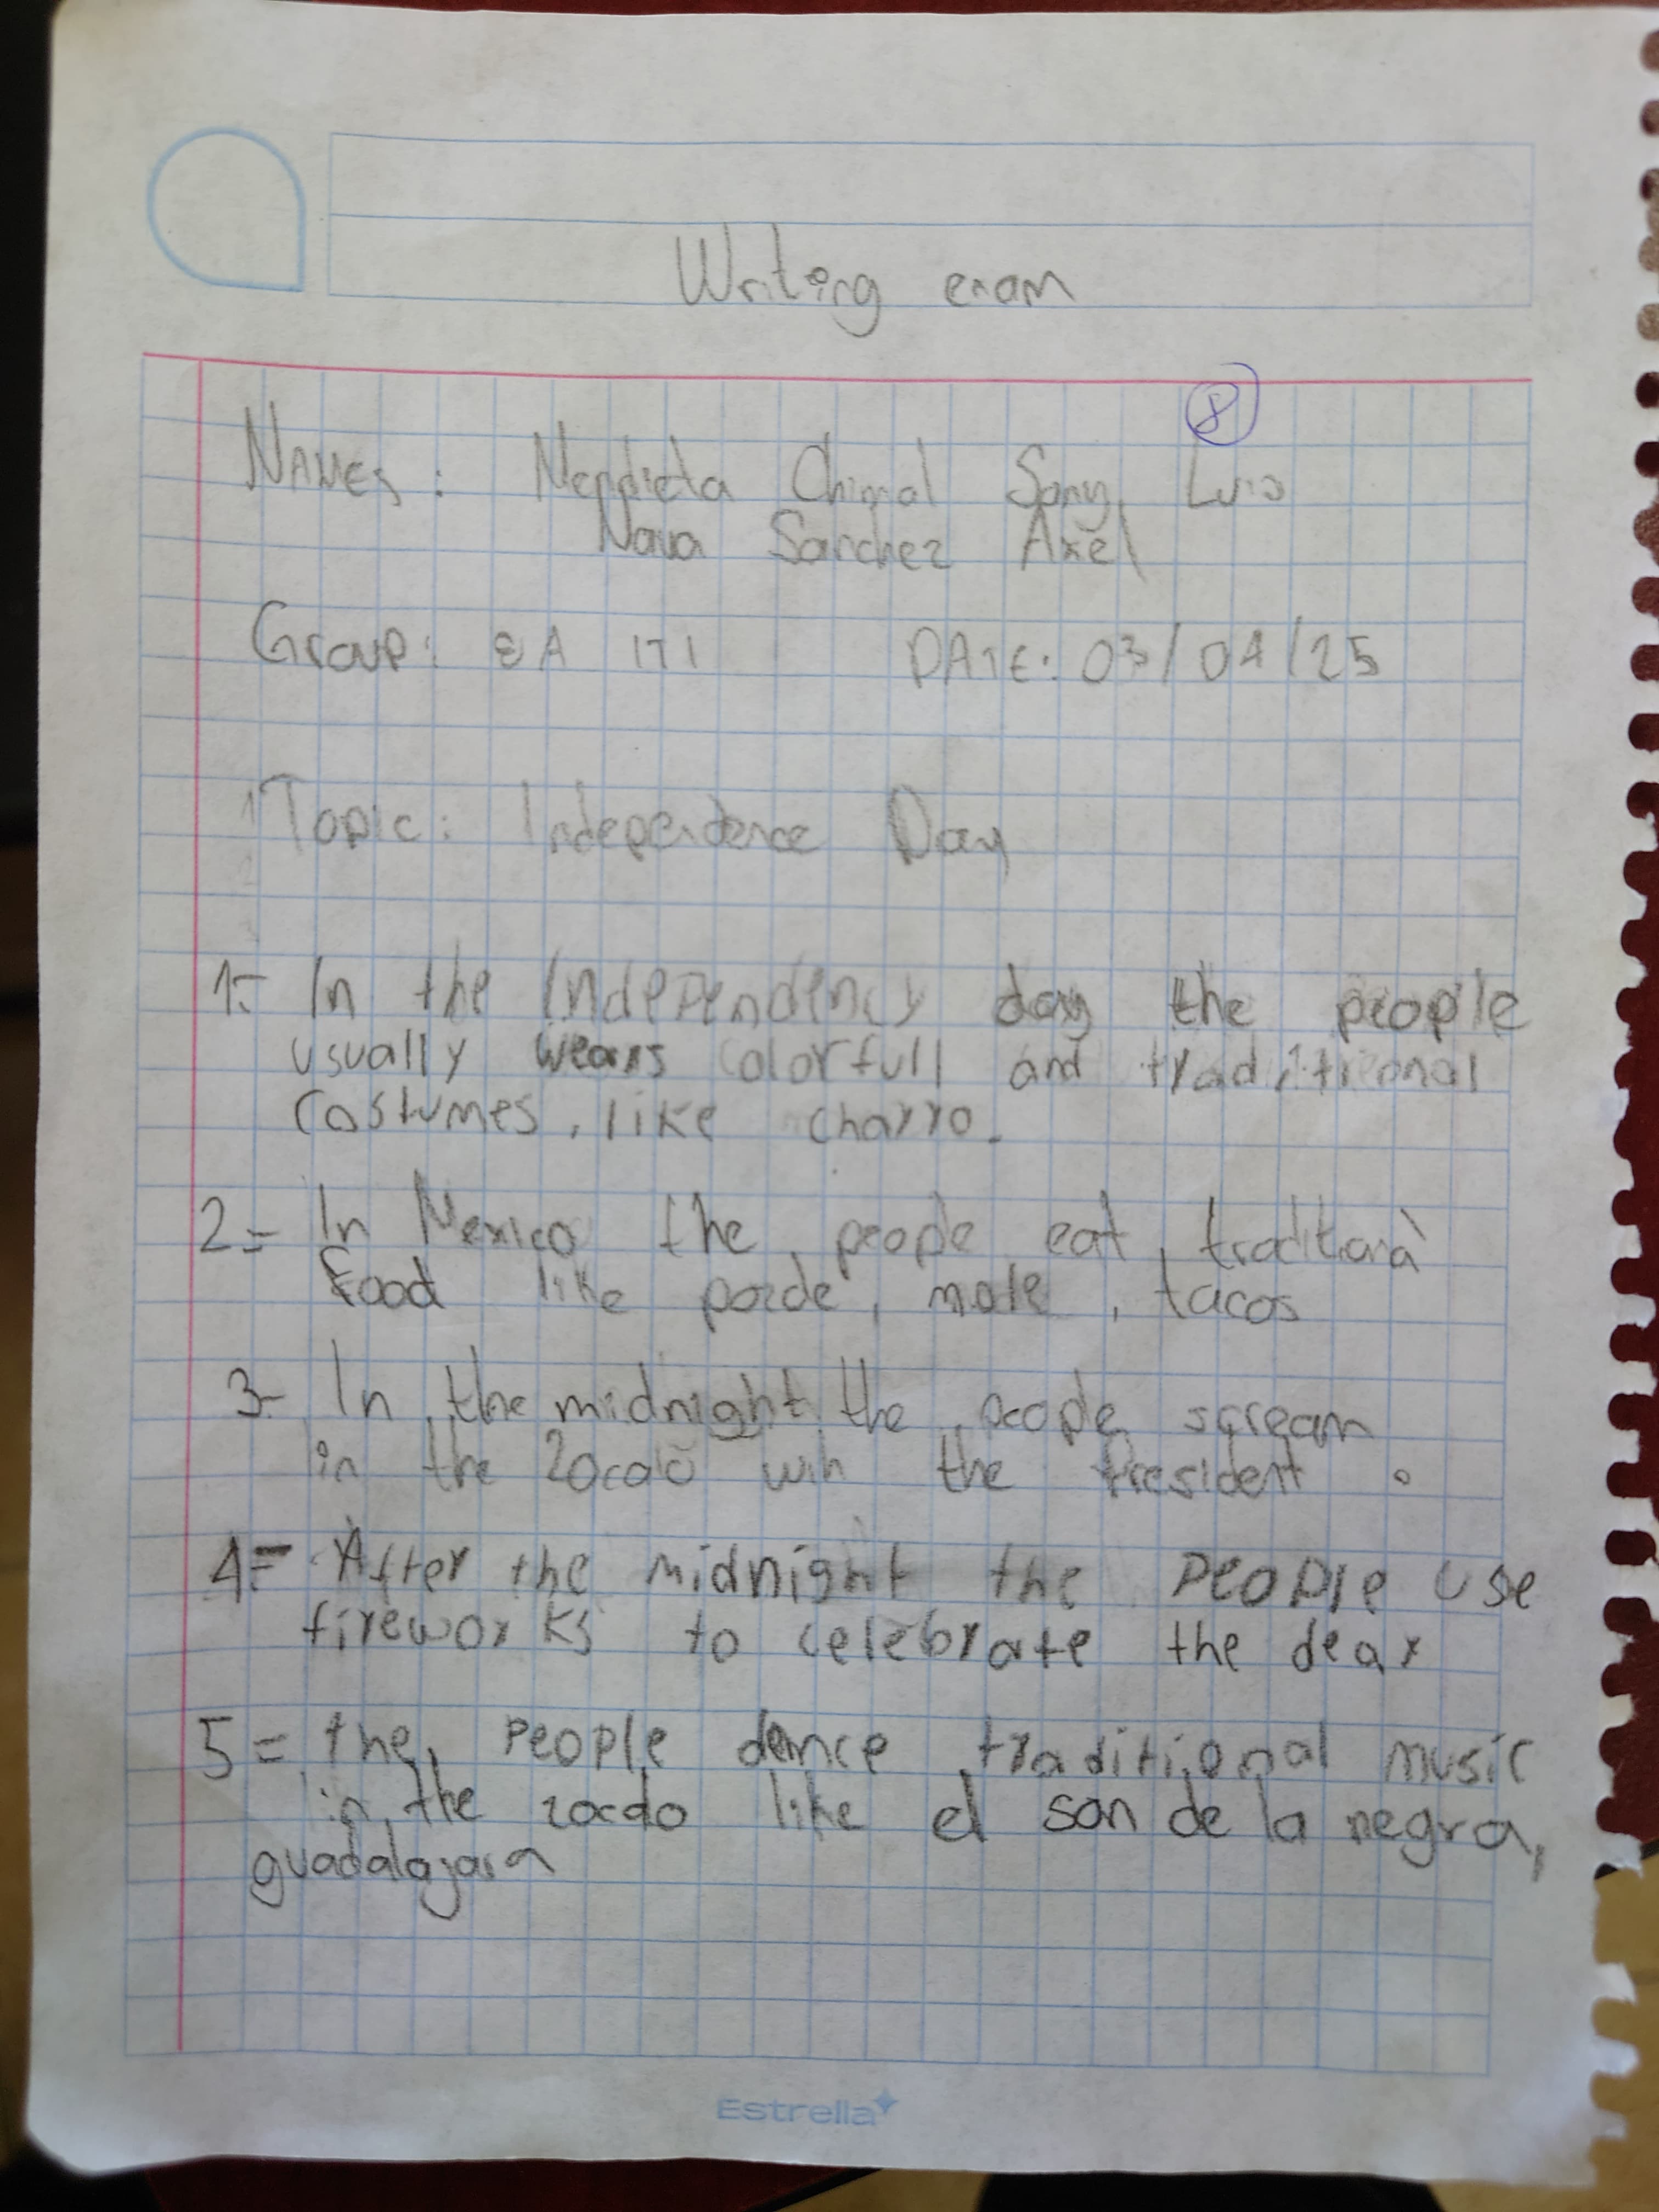 Writing exam
8
NAMES: Mendieta Chimal Sony Luis
Nava Sanchez Axel
Group: 8A ITI DATE: 03/04/25
Topic: Independence Day
1.- In the Independency day the people
usually wears colorfull and traditional
costumes, like charro.
2.- In Mexico the people eat traditional
food like pozole, mole, tacos
3.- In the midnight the people scream
in the zocalo wih the President.
4.- After the midnight the people use
fireworks to celebrate the dear
5.- the people dance traditional music
in the zocalo like el son de la negra,
guadalajara
Estrella